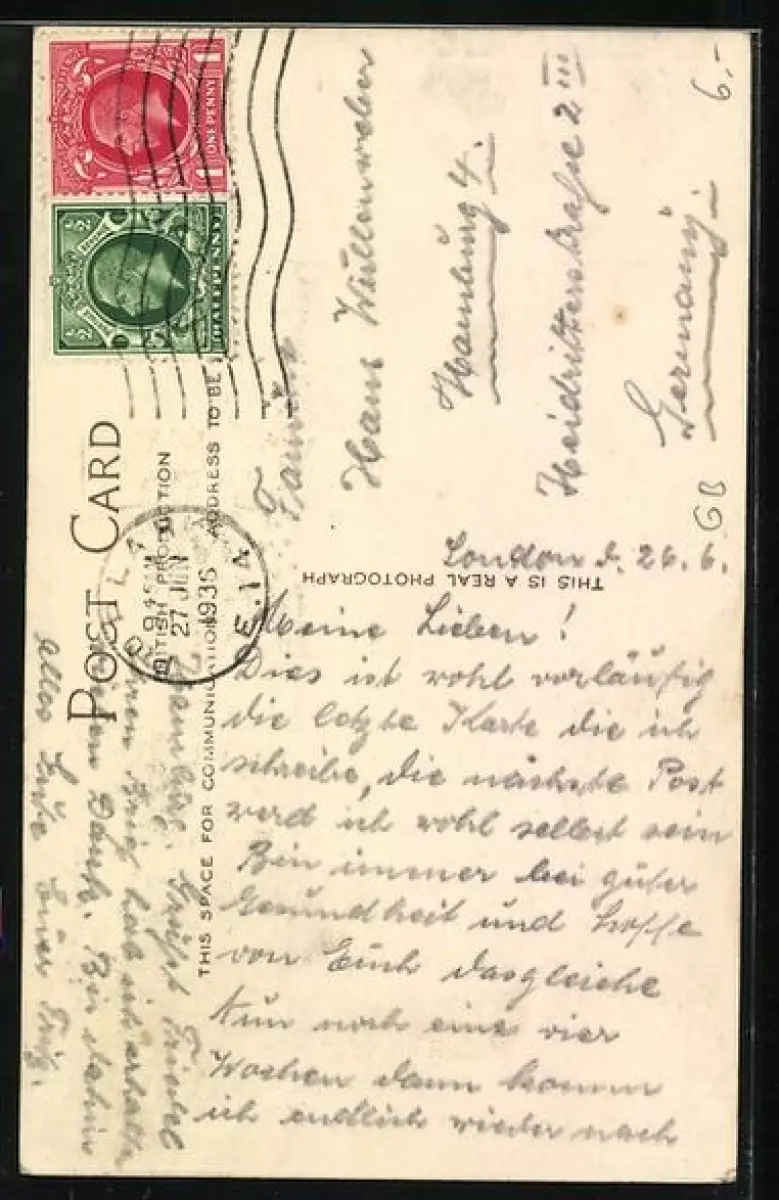 POST CARD
BRITISH PRODUCTION
THIS SPACE FOR COMMUNICATION
ADDRESS TO BE
THIS IS A REAL PHOTOGRAPH
ONE PENNY
1
1
HALFPENNY
½
½
945
27 JUN
1936
S.E.14
6,-
GB
Familie
Hans Wullenweber
Hamburg 4.
Heidritterstraße 2 III
Germany.
London d. 26.6.
Meine Lieben!
Dies ist wohl vorläufig
die letzte Karte die ich
schreibe, die nächste Post
werd ich wohl selbst sein
Bin immer bei guter
Gesundheit und hoffe
von Euch dasgleiche
Nun noch eine vier
Wochen dann komm
ich endlich wieder nach
Hamburg. Grüßt Friedel
Brief hab ich erhalten
Dank. Bis dahin
alles Liebe Euer Fritz.